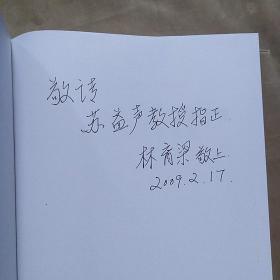 敬请
苏益声教授指正
林育梁敬上
2009.2.17.